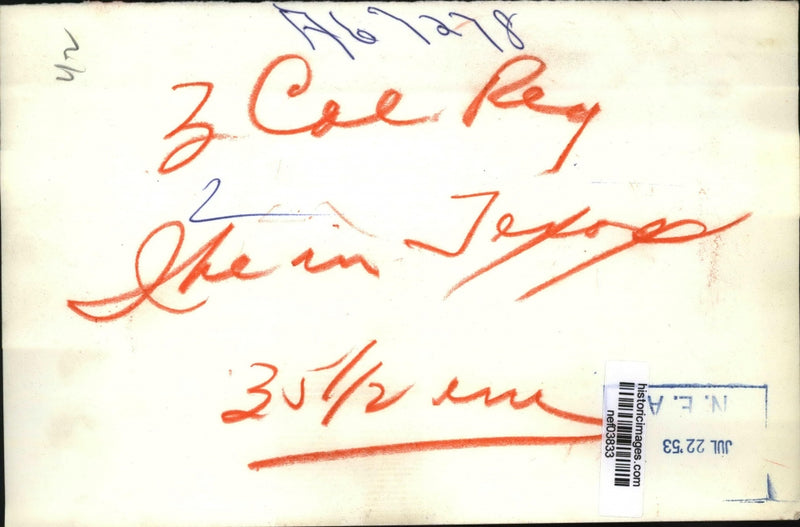 A67278
42
3 Col Reg
2
Ike in Texas
35 1/2 em
historicimages.com
nef03833
N. E. A
JUL 22 '53